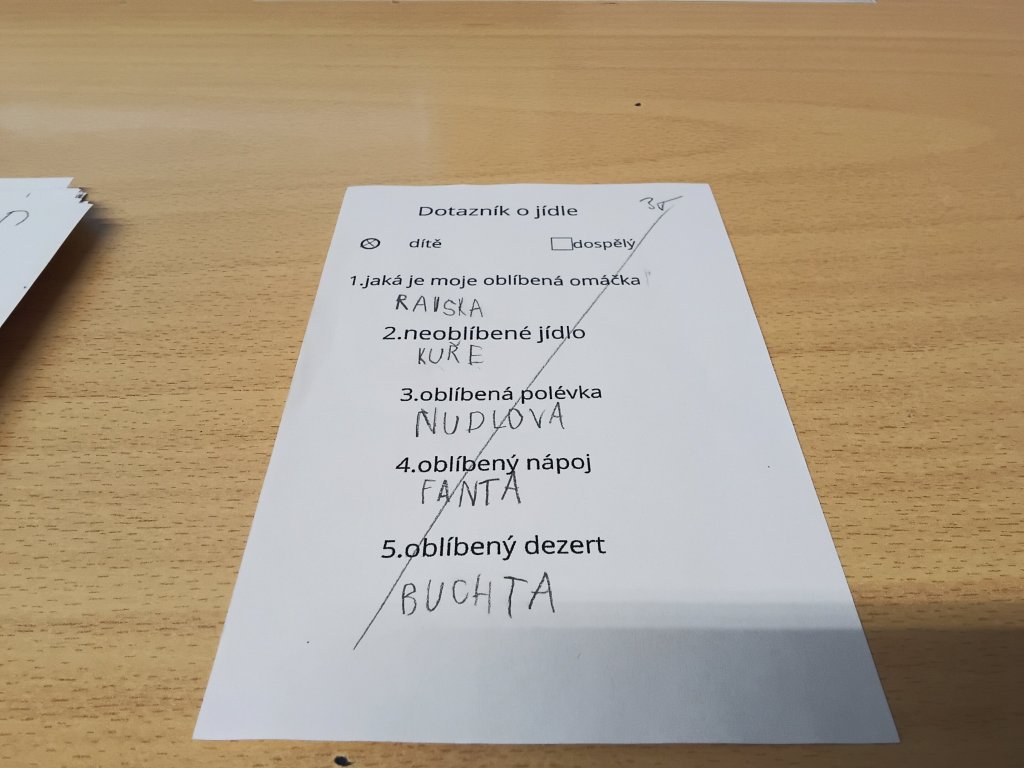 Dotazník o jídle
dítě dospělý
1.jaká je moje oblíbená omáčka
RAJSKA
2.neoblíbené jídlo
KUŘE
3.oblíbená polévka
NUDLOVA
4.oblíbený nápoj
FANTA
5.oblíbený dezert
BUCHTA